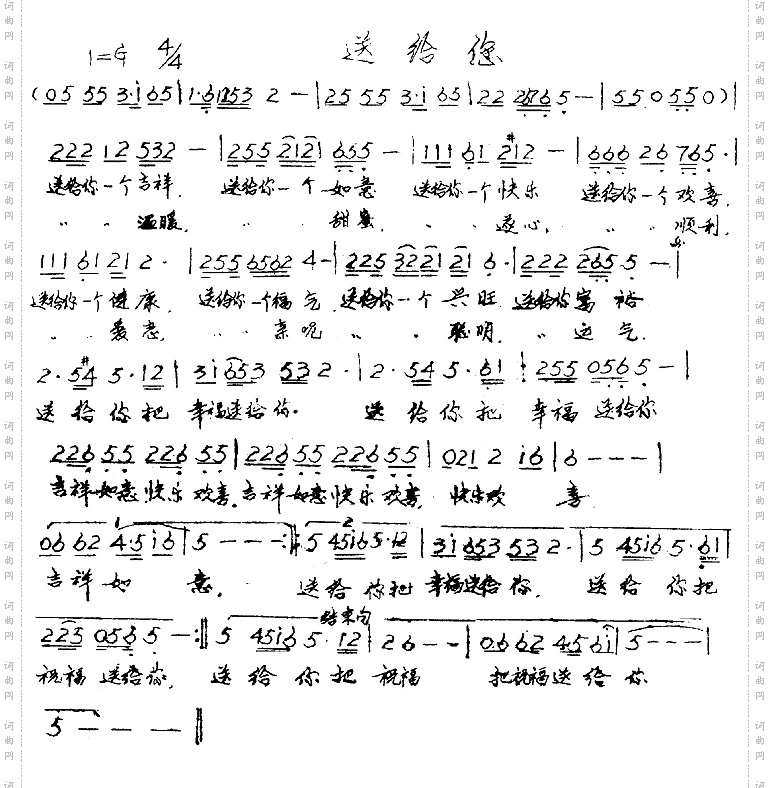 1=G 4/4 送给您
(05 55 3·i 65|1·61253 2 -|25 55 3·i 65|22 25765 -|55 05 50)|
222 12 532 -|255 2121 655 -|111 61 #212 -|666 26 765·|
送给你一个吉祥, 送给你一个如意 送给你一个快乐 送给你一个欢喜,
〃 〃 温暖, 〃 甜蜜, 〃 〃 〃 〃 顺利,
111 61 21 2·|255 6562 4 -|225 3221 21 6·|222 265 5 -|
送给你一个健康, 送给你一个福气, 送给你一个兴旺 送给你富裕
〃 〃 〃 〃 〃 聪明, 〃 运气,
2·5#4 5·12|3i653 532 2·|2·54 5·61|255 0565 -|
送给你把幸福送给你. 送给你把幸福送给你
226 55 226 55|226 55 226 55|021 2 i6|6 - - -|
吉祥如意快乐欢喜,吉祥如意快乐欢喜, 快乐欢喜
1 2
06 62 4·5i6|5 - - -:‖5 45i65·12|3i653 532·|5 45i6 5·61|
吉祥如意. 送给你把幸福送给你, 送给你把
结束句
225 0565 -:‖5 45i65·12|26 - -|0662 4·56i|5 - - -|
祝福送给你, 送给你把祝福 把祝福送给你
5 - - -‖
词曲网